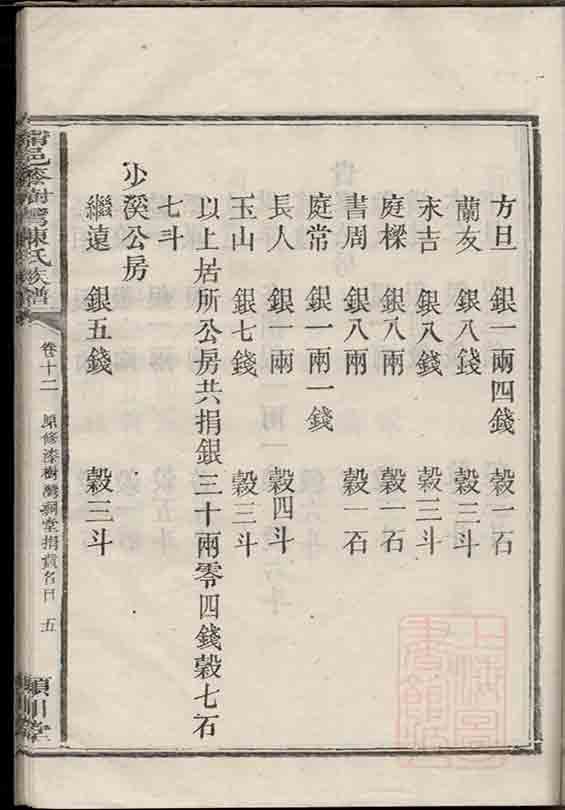 方旦 銀一兩四錢 穀一石
蘭友 銀八錢 穀三斗
永吉 銀八錢 穀三斗
庭樑 銀八兩 穀一石
書周 銀八兩 穀一石
庭常 銀一兩一錢
長人 銀一兩 穀四斗
玉山 銀七錢 穀三斗
以上居所公房共捐銀三十兩零四錢穀七石
七斗
少溪公房
繼遠 銀五錢 穀三斗
漆樹灣陳氏族譜
卷十二 原修漆樹灣祠堂捐貲名目 五
潁川堂
上海圖書館藏